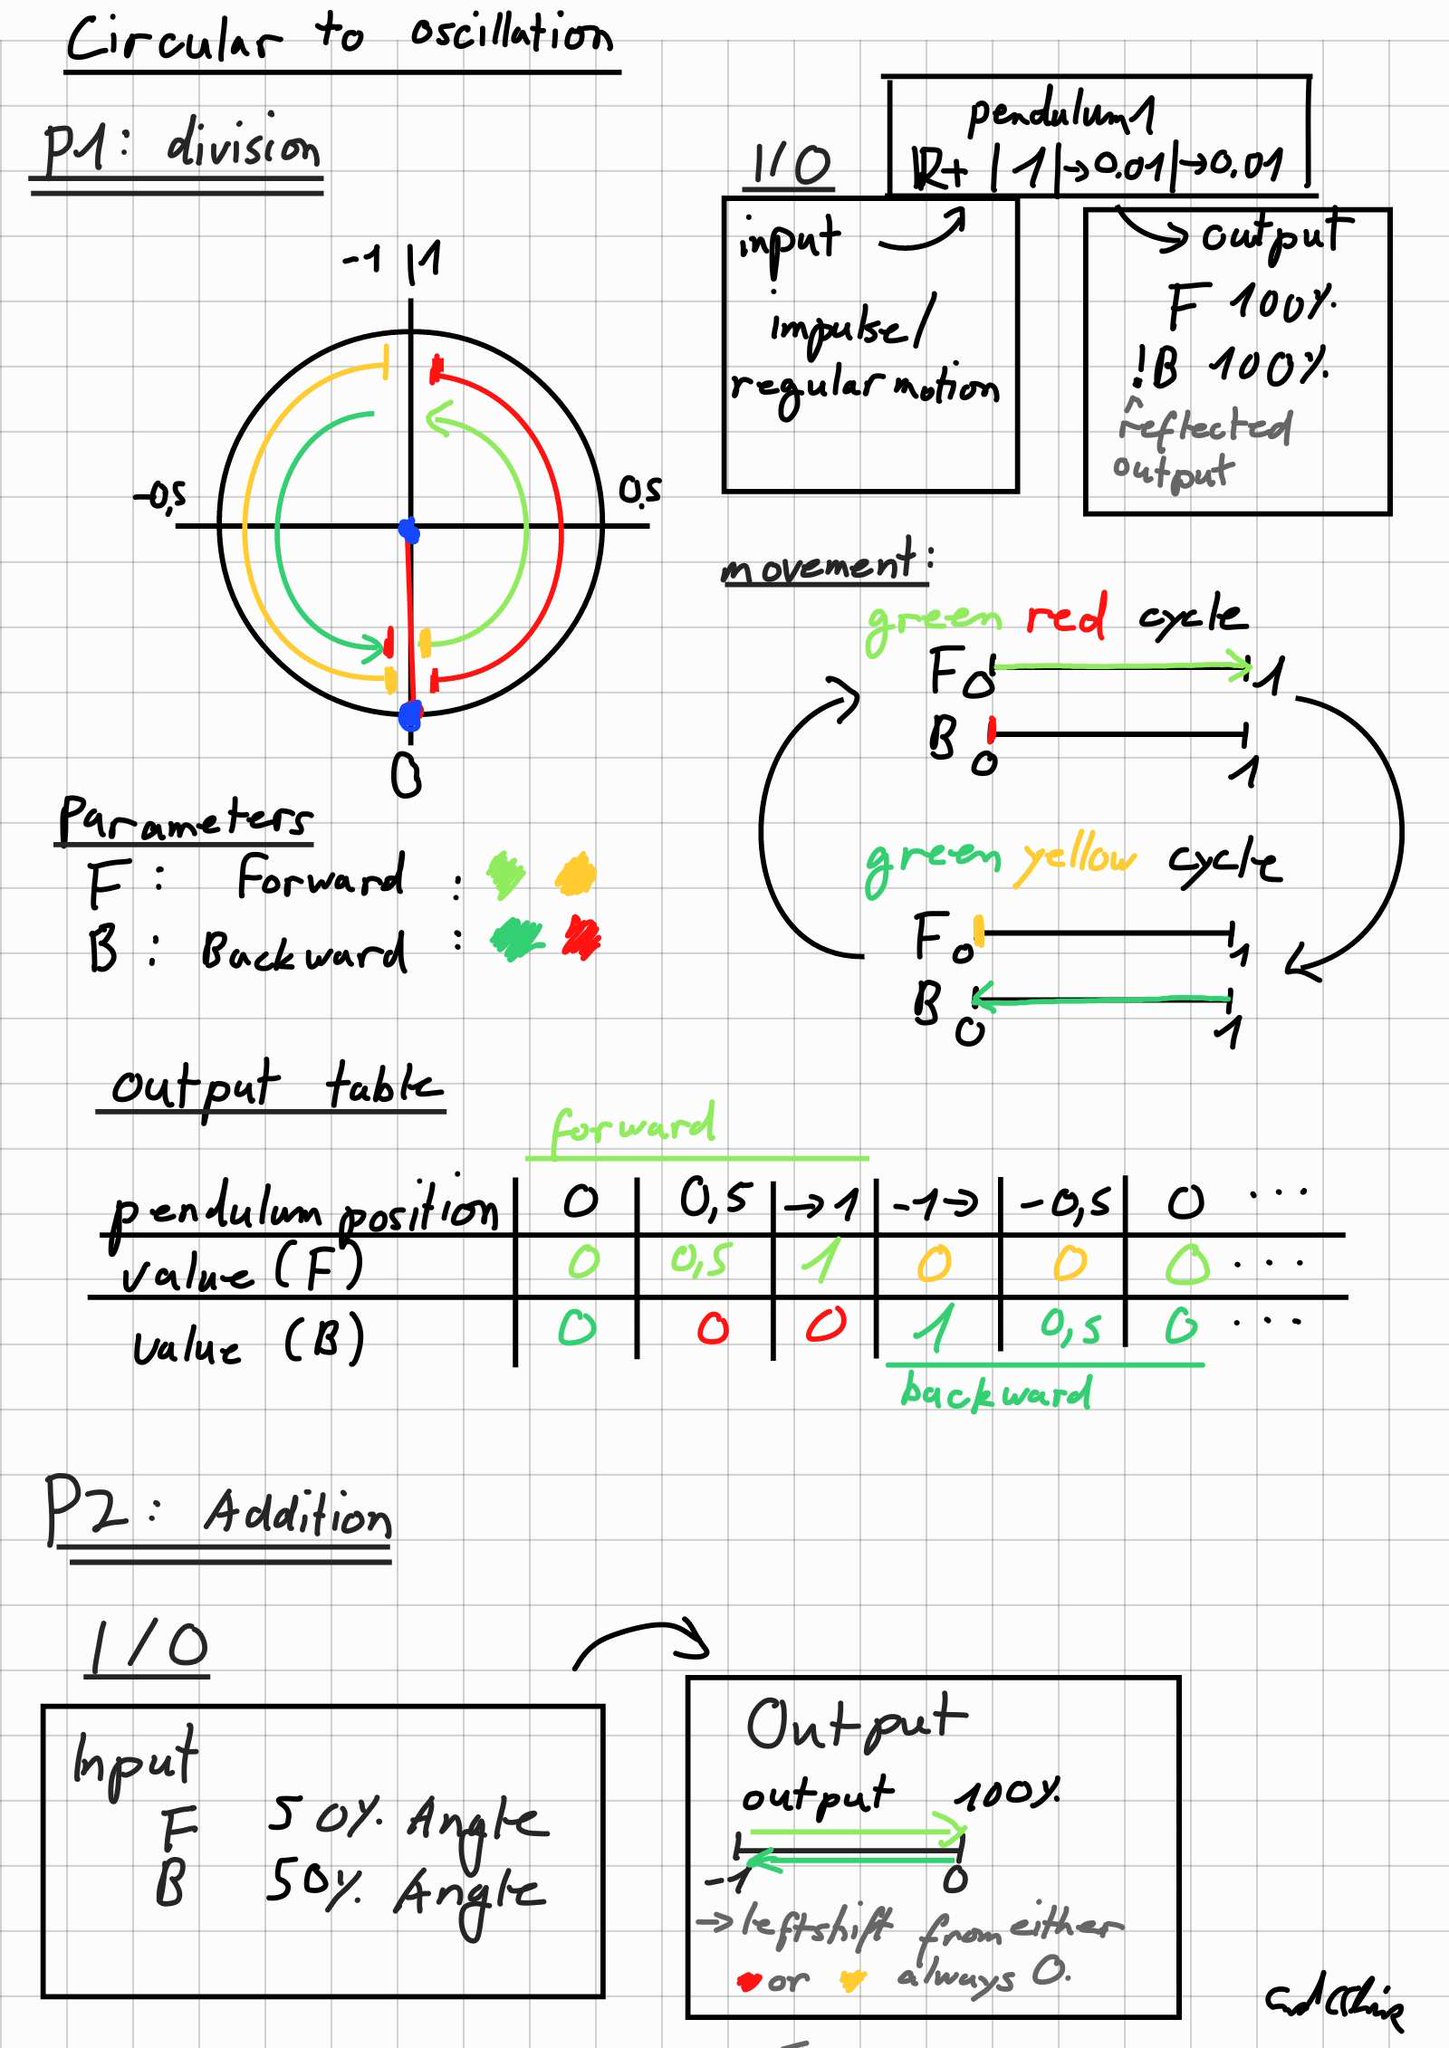 Circular to oscillation
P1: division
-1 | 1
-0,5
0,5
0
I/O
pendulum1
R+ | 1 | → 0.01 | → 0.01
input
impulse/
regular motion
output
F 100%
!B 100%
^
reflected
output
movement:
green red cycle
F 0 1
B 0 1
green yellow cycle
F 0 1
B 0 1
Parameters
F : Forward :
B : Backward :
Output table
forward
pendulum position | 0 | 0,5 | →1 | -1→ | -0,5 | 0 ...
value (F) 0 0,5 1 0 0 0 ...
value (B) 0 0 0 1 0,5 0 ...
backward
P2: Addition
I/O
Input
F 50% Angle
B 50% Angle
Output
output 100%
-1 0
→ leftshift from either
or always 0.